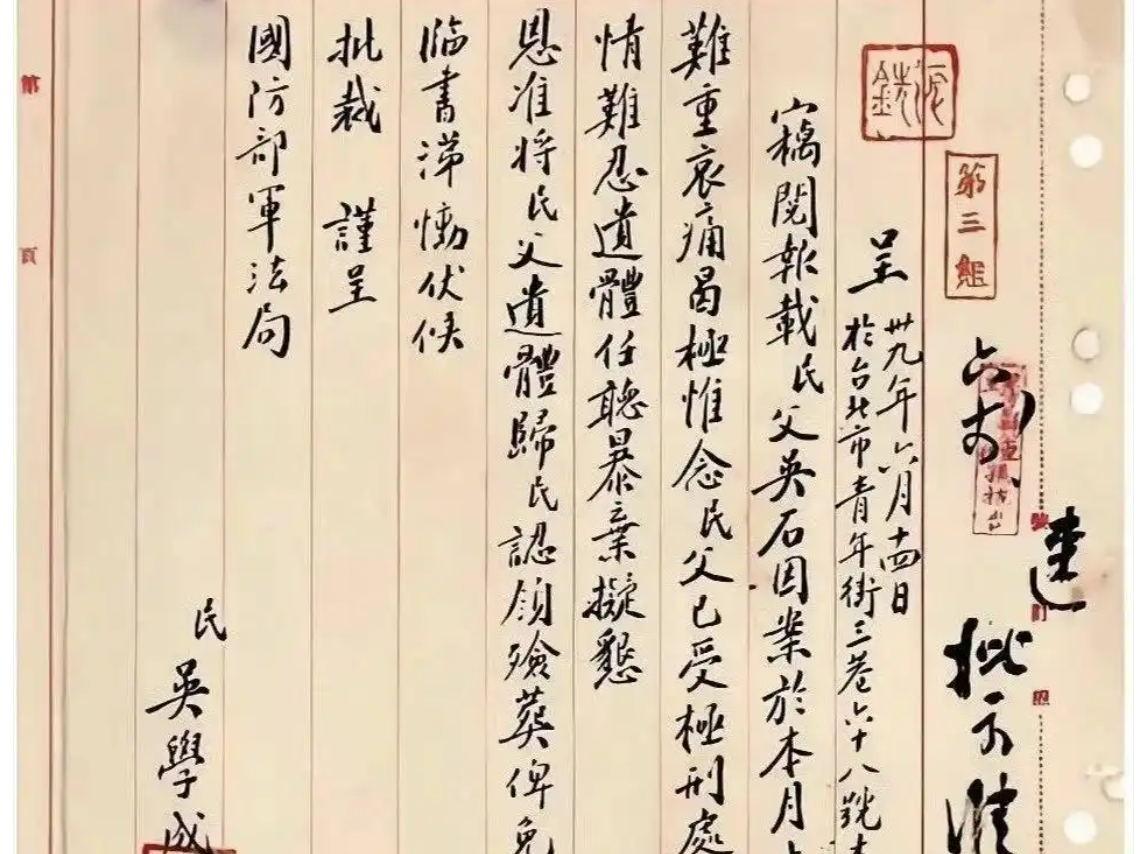 第三組
速
批示准
呈
卅九年六月十四日
於台北市青年街三巷六十八號
竊閱報載民父吳石因案於本月
難重哀痛曷極惟念民父已受極刑處
情難忍遺體任聽暴棄擬懇
恩准將民父遺體歸民認領殮葬俾免
臨書涕慟伏候
批裁 謹呈
國防部軍法局
民
吳學成
第
頁